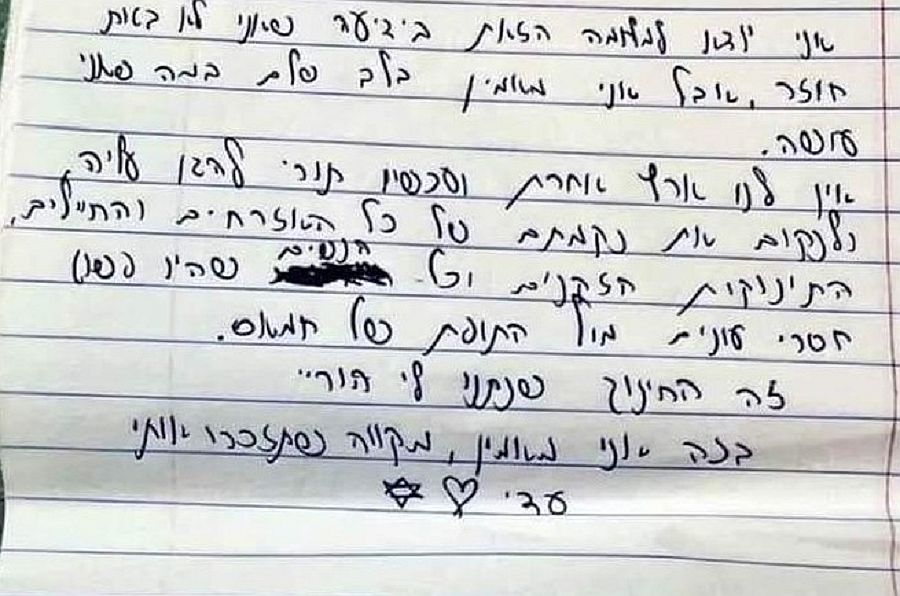 אני יוצא למלחמה הזאת בידיעה שאני לא בטוח
חוזר, אבל אני מאמין בלב שלם במה שאני
עושה.
אין לנו ארץ אחרת ועכשיו תורי להגן עליה,
ולנקום את נקמתם של כל האזרחים והחיילים,
התינוקות הזקנים וכל הנשים שהיו פשוט
חסרי אונים מול התופת של חמאס.
זה החינוך שנתנו לי הוריי
בזה אני מאמין, מקווה שתזכרו אותי
עדי ♡ ✡